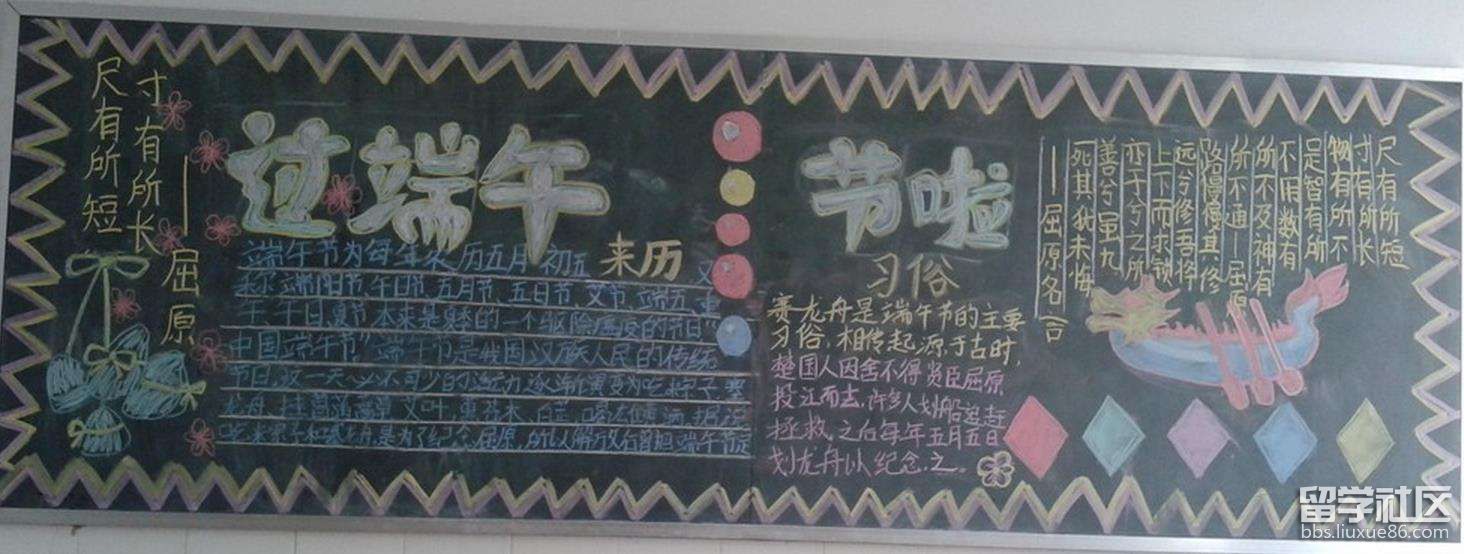 尺有所短
寸有所长
——屈原
过端午
节啦
来历
端午节为每年农历五月初五 又
称端阳节、午日节、五月节、五日节、艾节、端午、重
午、午日、夏节 本来是夏季的一个驱除瘟疫的节日
中国端午节 端午节是我国汉族人民的传统
节日,这一天必不可少的活动逐渐演变为吃粽子,赛
龙舟,挂菖蒲蒿草艾叶,熏苍术、白芷,喝雄黄酒,据说
吃粽子和赛龙舟,是为了纪念屈原,所以解放后曾把端午节定
习俗
赛龙舟是端午节的主要
习俗,相传起源于古时,
楚国人因舍不得贤臣屈原
投江而去,许多人划船追赶
拯救,之后每年五月五日
划龙舟以纪念之。
尺有所短
寸有所长
物有所不
足智有所
不用数有
所不及神有
所不通—屈原
路慢慢其修
远兮修吾将
上下而求锁
亦于兮之所
善兮虽九
死其我未悔
——屈原名言
留学社区
bbs.liuxue86.com